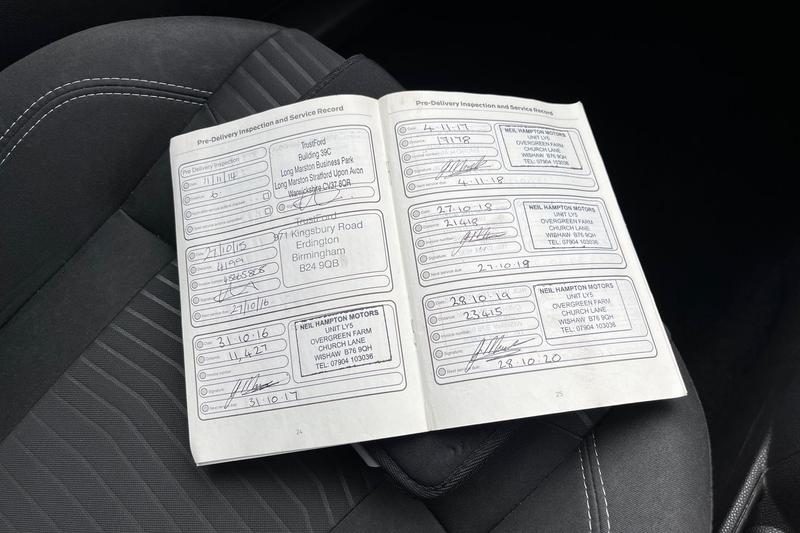 Pre-Delivery Inspection and Service Record
Pre Delivery Inspection
Date: 11/11/14
6.
TrustFord
Building 39C
Long Marston Business Park
Long Marston Stratford Upon Avon
Warwickshire CV37 8QR
Date: 27/10/15
Distance: 4199
Invoice number:
Signature:
Next service due: 27/10/16
TrustFord
971 Kingsbury Road
Erdington
Birmingham
B24 9QB
Date: 31.10.16
Distance: 11,427
Invoice number:
Signature:
Next service due: 31.10.17
NEIL HAMPTON MOTORS
UNIT LY5
OVERGREEN FARM
CHURCH LANE
WISHAW B76 9QH
TEL: 07904 103036
24
Pre-Delivery Inspection and Service Record
Date: 4.11.17
Distance: 17178
Invoice number:
Signature:
Next service due: 4.11.18
NEIL HAMPTON MOTORS
UNIT LY5
OVERGREEN FARM
CHURCH LANE
WISHAW B76 9QH
TEL: 07904 103036
Date: 27.10.18
Distance: 21418
Invoice number:
Signature:
Next service due: 27.10.19
NEIL HAMPTON MOTORS
UNIT LY5
OVERGREEN FARM
CHURCH LANE
WISHAW B76 9QH
TEL: 07904 103036
Date: 28.10.19
Distance: 23415
Invoice number:
Signature:
Next service due: 28.10.20
NEIL HAMPTON MOTORS
UNIT LY5
OVERGREEN FARM
CHURCH LANE
WISHAW B76 9QH
TEL: 07904 103036
25